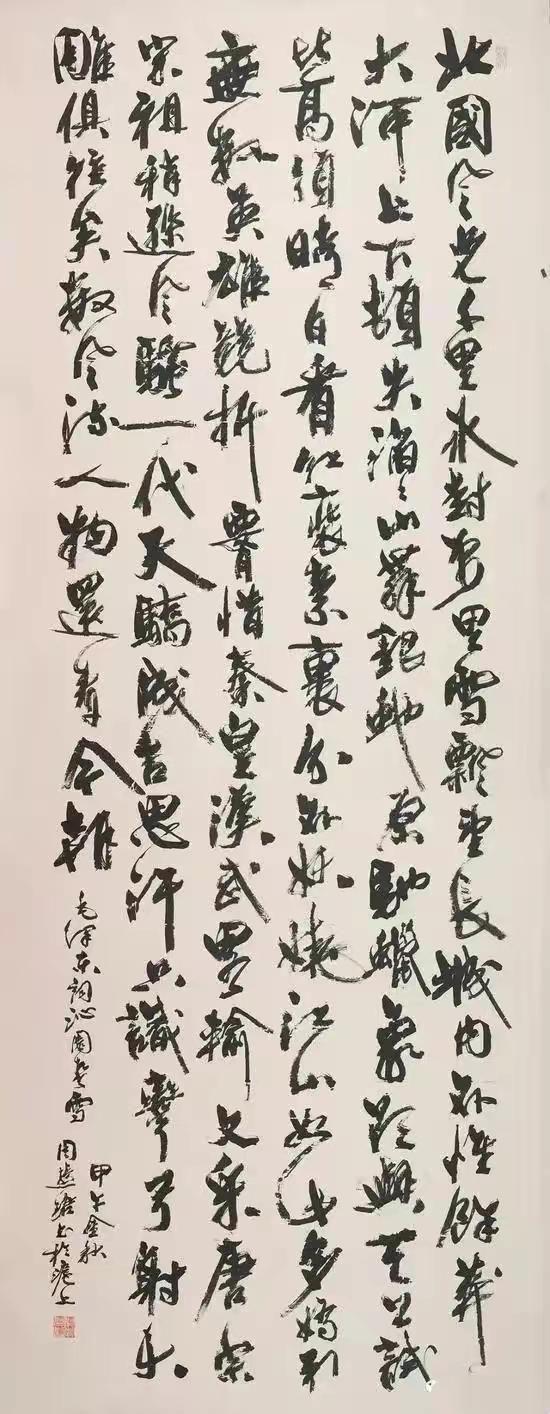 北國风光千里冰封萬里雪飄望長城內外惟餘莽
大河上下頓失滔々山舞銀蛇原馳蠟象欲與天公試
比高須晴日看紅裝素裹分外妖嬈江山如此多嬌引
無數英雄競折腰惜秦皇漢武略輸文采唐宗
宋祖稍遜风騷一代天驕成吉思汗只識彎弓射大
雕俱往矣數风流人物還看今朝
毛澤东詞沁園春雪
甲午金秋
周慧珺书於滬上